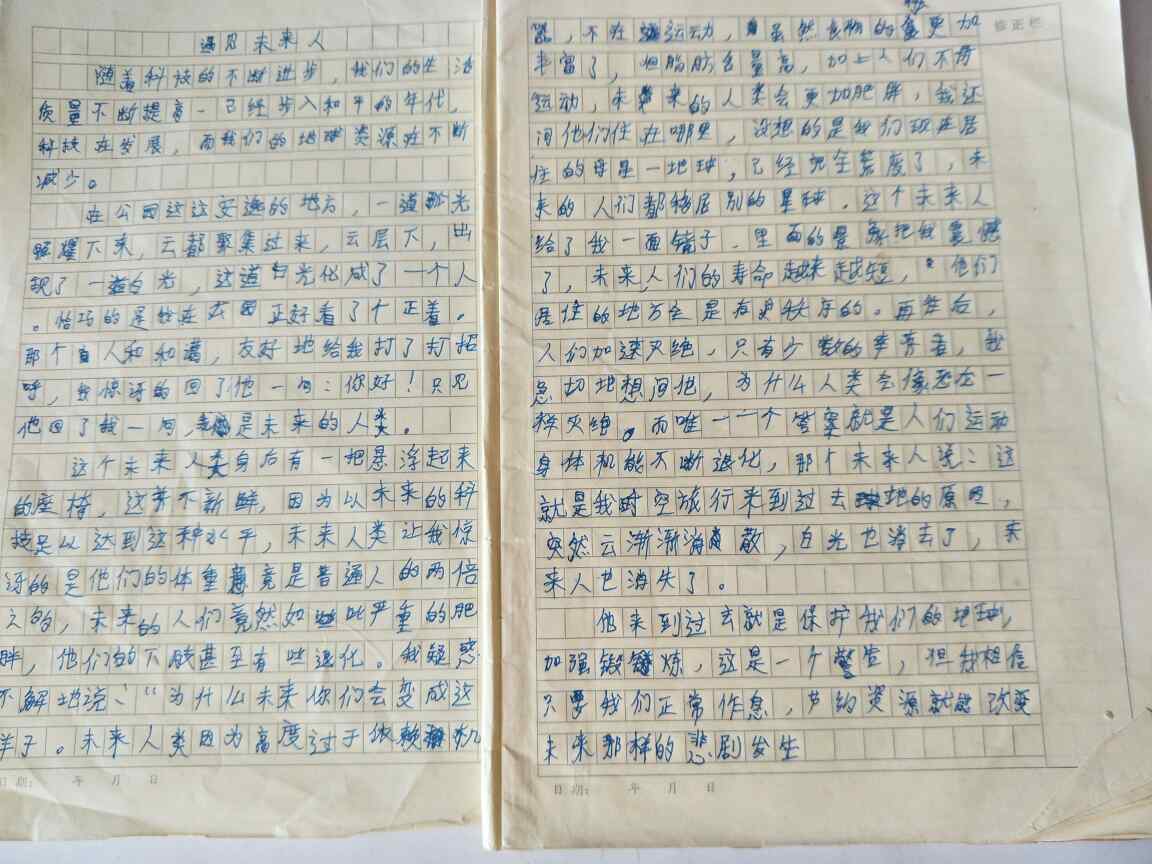 遇见未来人
随着科技的不断进步，我们的生活
质量不断提高，已经步入和平的年代，
科技在发展，而我们的地球资源在不断
减少。
在公园这这安逸的地方，一道光
照耀下来，云都聚集过来，云层下，出
现了一道白光，这道白光化成了一个人
。恰巧的是我在公园正好看了个正着。
那个人和和蔼，友好地给我打了打招
呼，我惊讶的回了他一句：你好！只见
他回了我一句，我是未来的人类。
这个未来人类身后有一把悬浮起来
的座椅，这并不新鲜，因为以未来的科
技足以达到这种水平，未来人类让我惊
讶的是他们的体重竟是普通人的两倍
之多，未来的人们竟然如此严重的肥
胖，他们的下肢甚至有些退化。我疑惑
不解地说：“为什么未来你们会变成这
样子。未来人类因为高度过于依赖机
器，不在运动，虽然食物的更加
丰富了，但脂肪含量高，加上人们不再
运动，未来的人类会更加肥胖，我还
问他们住在哪里，没想的是我们现在居
住的母星一地球，已经完全荒废了，未
来的人们都移居别的星球，这个未来人
给了我一面镜子，里面的景象把我震憾
了，未来人们的寿命越来越短，他们
居住的地方全是有秩序的。再往后，
人们加速灭绝，只有少数的幸存者，我
急切地想问他，为什么人类会像恐龙一
样灭绝。而唯一一个答案就是人们运动
身体机能不断退化，那个未来人说：这
就是我时空旅行来到过去地的原因，
突然云渐渐消散，白光也消去了，未
来人也消失了。
他来到过去就是保护我们的地球，
加强锻炼，这是一个警告，但我相信
只要我们正常作息，节约资源就能改变
未来那样的悲剧发生
日期： 年 月 日
日期： 年 月 日
修正栏